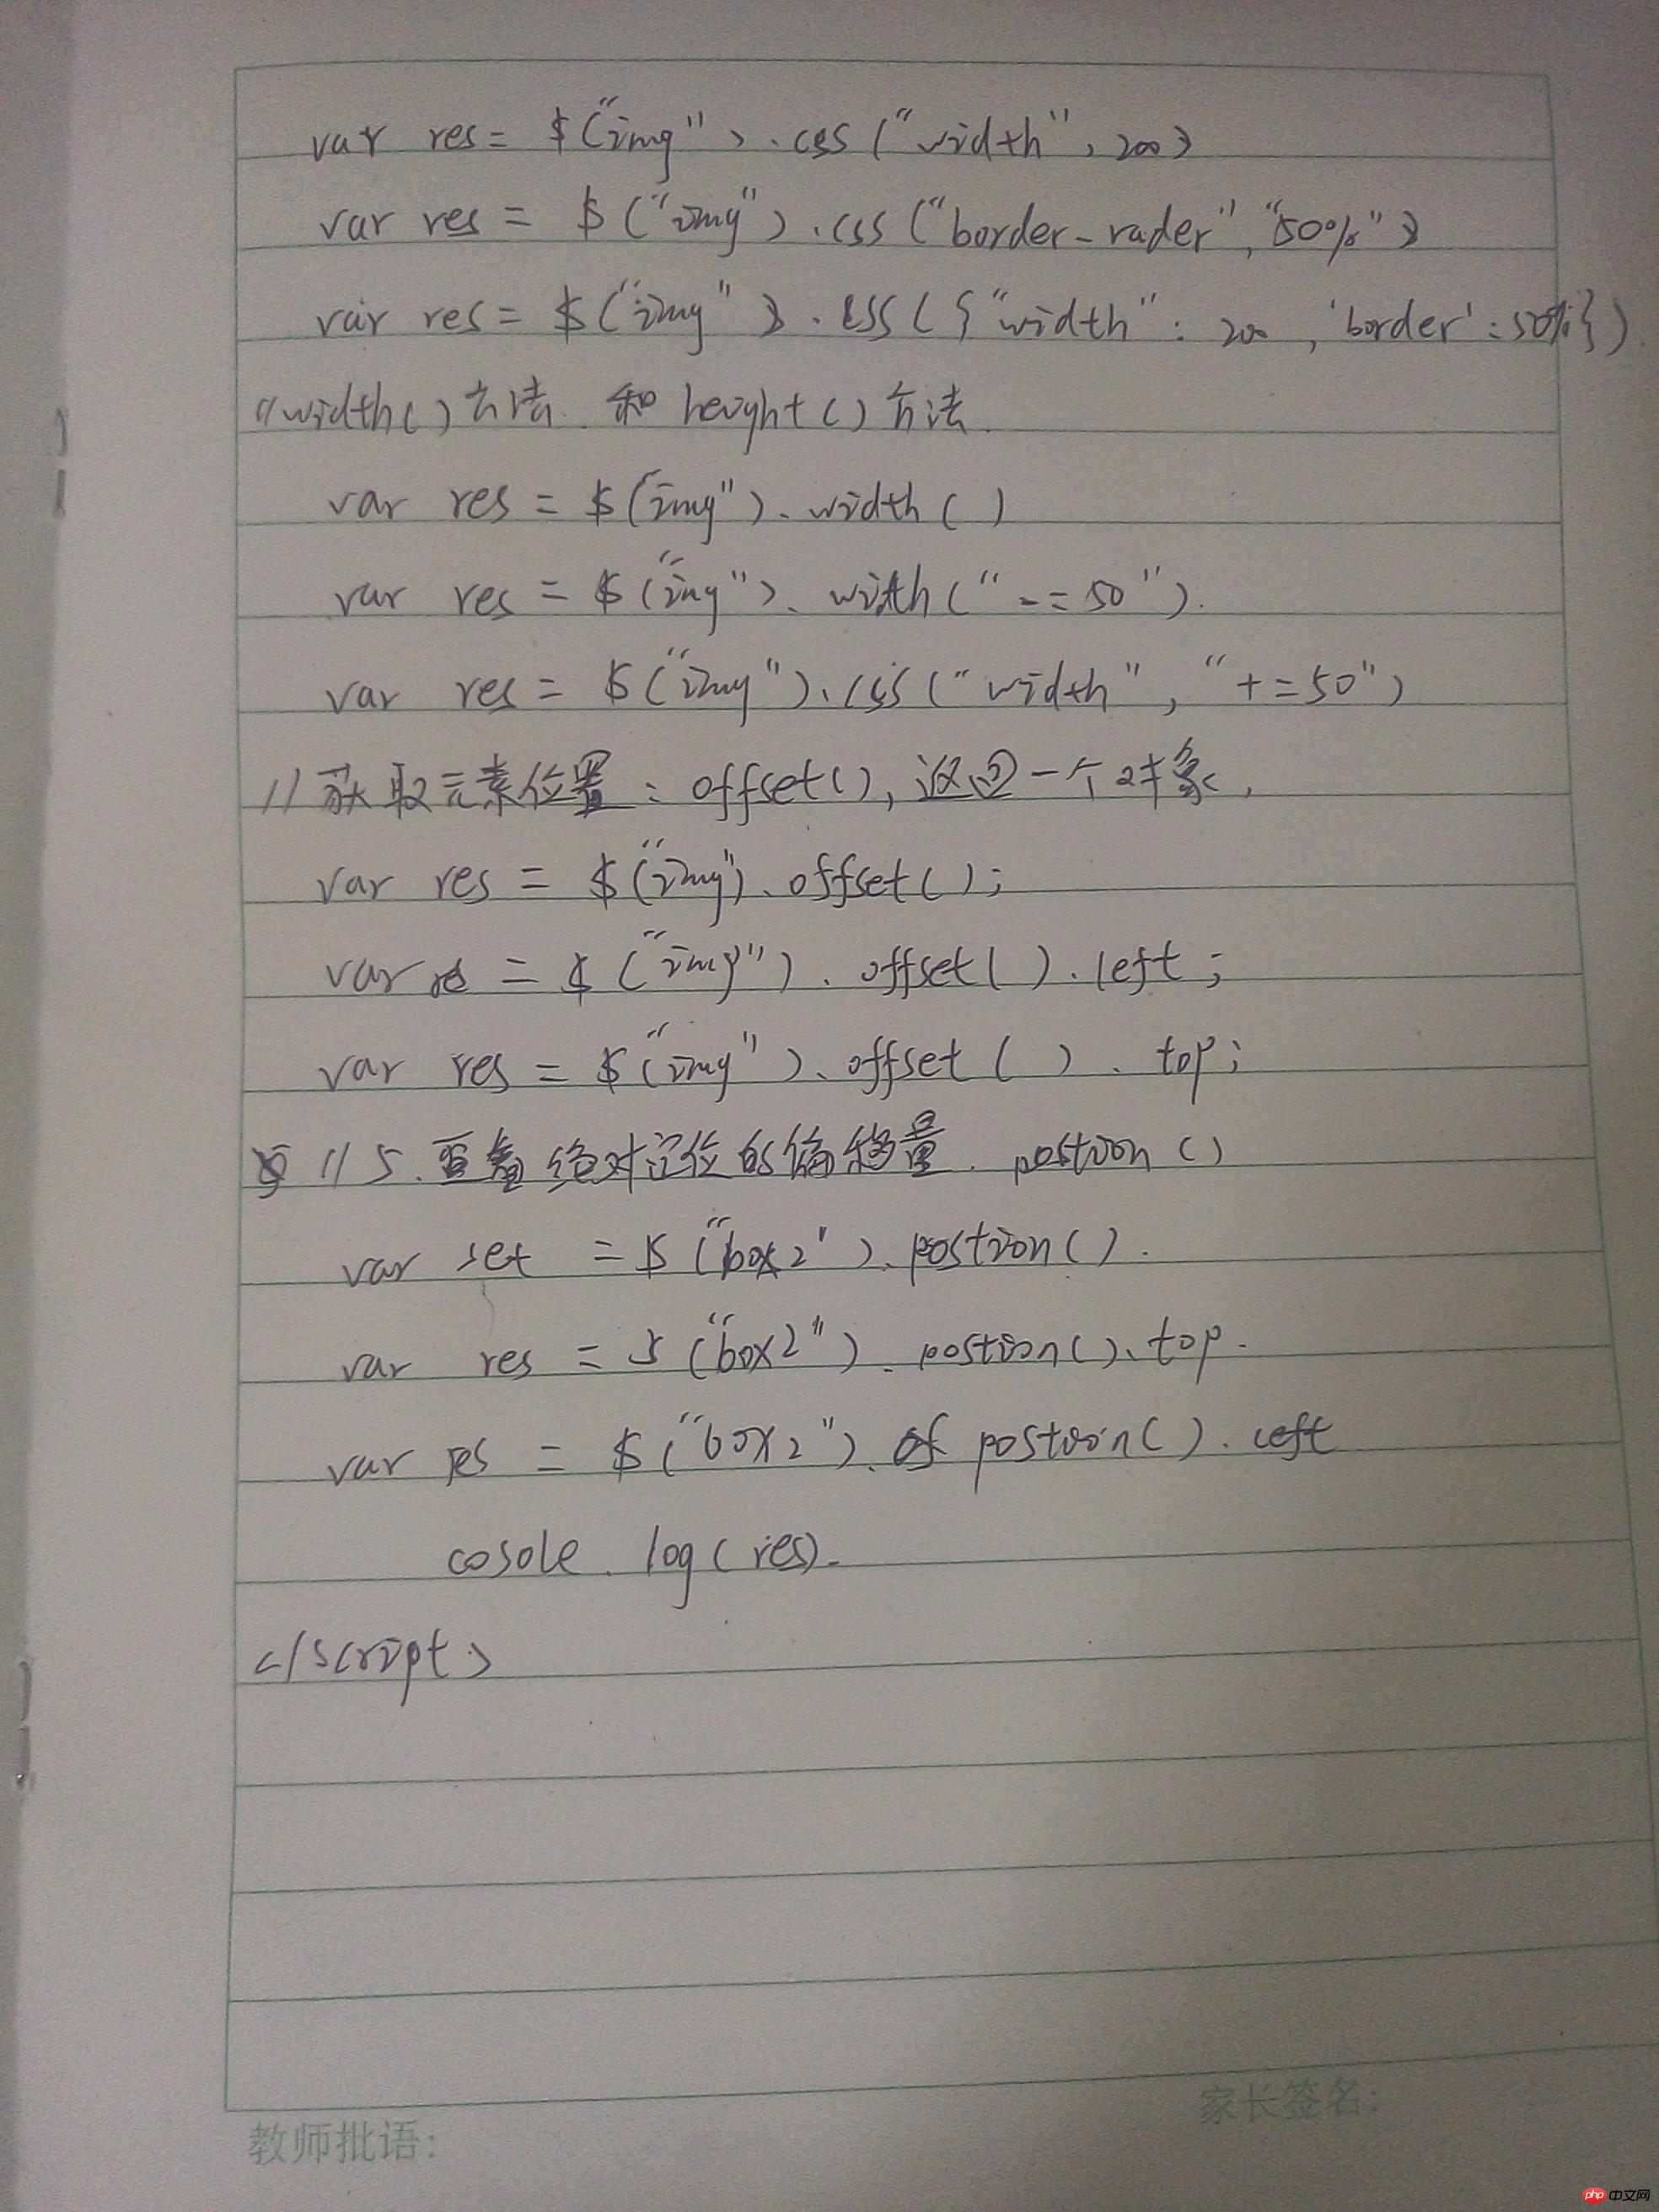 var res = $("img").css("width", 200)
var res = $("img").css("border-rader", "50%")
var res = $("img").css({"width": 200, 'border': 50%})
//width()方法. 和 height()方法.
var res = $("img").width()
var res = $("img").width("-=50").
var res = $("img").css("width", "+=50")
//获取元素位置: offset(), 返回一个对象,
var res = $("img").offset();
var res = $("img").offset().left;
var res = $("img").offset().top;
//5. 查看绝对定位的偏移量. postion()
var set = $("box2').postion().
var res = $("box2").postion().top.
var res = $("box2"). postion().left
cosole.log(res).
</script>
教师批语:
家长签名:
php 中文网